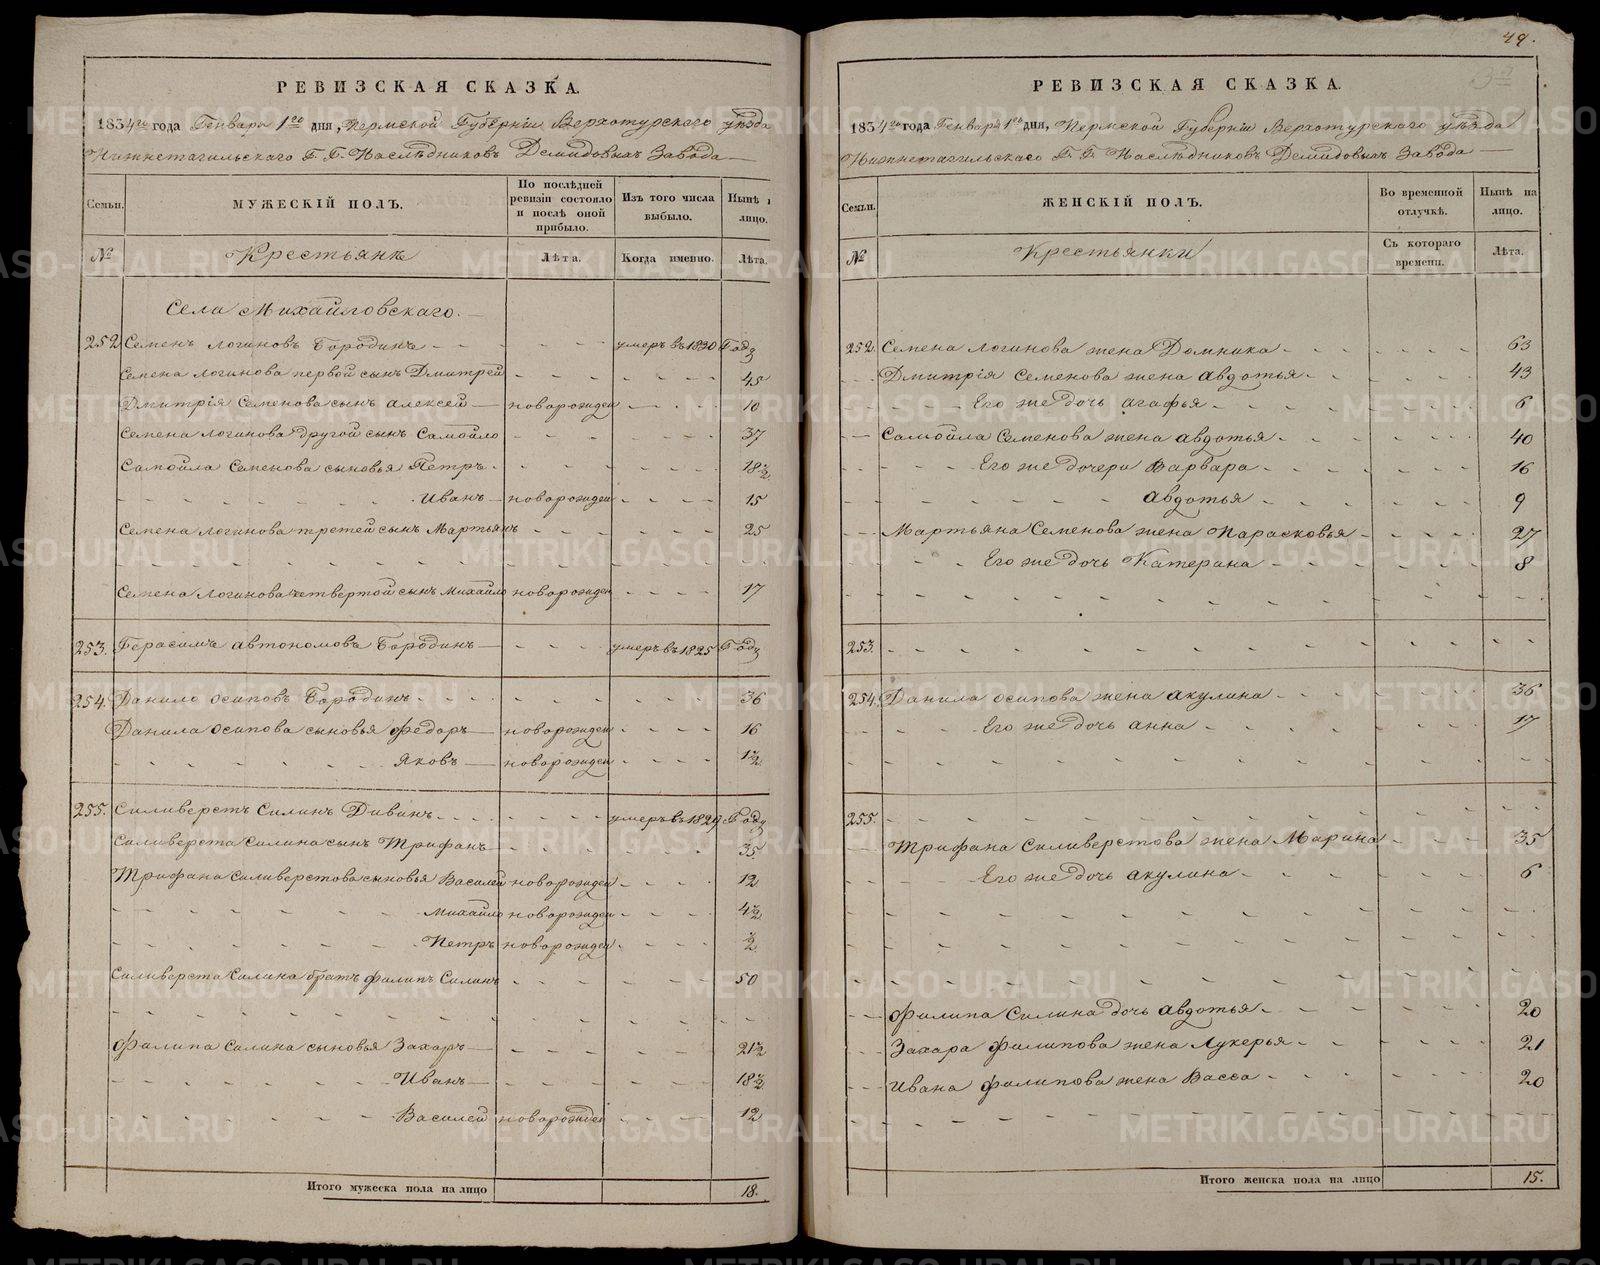 РЕВИЗСКАЯ СКАЗКА.
1834го года Генваря 1го дня, Пермской Губерніи Верхотурскаго уѣзда
Нижнетагильскаго Г. Г. Наслѣдниковъ Демидовыхъ Завода
Семьи.
МУЖЕСКІЙ ПОЛЪ.
По послѣдней ревизіи состояло и послѣ оной прибыло.
Изъ того числа выбыло.
Нынѣ лицо.
№
Крестьянъ
Лѣта.
Когда именно.
Лѣта.
Села Михайловскаго.
252 Семенъ Логиновъ Бородинъ умеръ въ 1830 Году
Семена Логинова первой сынъ Дмитрей 45
Дмитрія Семенова сынъ Алексей новорожден 10
Семена Логинова другой сынъ Самойло 37
Самойла Семенова сыновья Петръ 18½
Иванъ новорожден 15
Семена Логинова третей сынъ Мартьянъ 25
Семена Логинова четвертой сынъ Михайло новорожден 17
253. Герасимъ Автономовъ Бородинъ умеръ въ 1825 Году
254. Данило Осиповъ Бородинъ 36
Данила Осипова сыновья Федоръ новорожден 16
Яковъ новорожден 1½
255. Силиверстъ Силинъ Дивинъ умеръ въ 1829 Году
Силиверста Силина сынъ Трифанъ 35
Трифана Силиверстова сыновья Василей новорожден 12
Михайло новорожден 4½
Петръ новорожден ½
Силиверста Силина братъ Филипъ Силинъ 50
Филипа Силина сыновья Захаръ 21½
Иванъ 18½
Василей новорожден 12
Итого мужеска пола на лицо 18.
49.
РЕВИЗСКАЯ СКАЗКА.
1834го года Генваря 1го дня, Пермской Губерніи Верхотурскаго уѣзда
Нижнетагильскаго Г. Г. Наслѣдниковъ Демидовыхъ Завода
Семьи.
ЖЕНСКІЙ ПОЛЪ.
Во временной отлучкѣ.
Нынѣ на лицо.
№
Крестьянки
Съ котораго времени.
Лѣта.
252. Семена Логинова жена Домника 63
Дмитрія Семенова жена Авдотья 43
Его же дочь Агафья 6
Самойла Семенова жена Авдотья 40
Его же дочери Варвара 16
Авдотья 9
Мартьяна Семенова жена Парасковья 27
Его же дочь Катерина 8
253.
254. Данила Осипова жена Акулина 36
Его же дочь Анна 17
255.
Трифана Силиверстова жена Марина 35
Его же дочь Акулина 6
Филипа Силина дочь Авдотья 20
Захара Филипова жена Лукерья 21
Ивана Филипова жена Васса 20
Итого женска пола на лицо 15.
METRIKI.GASO-URAL.RU